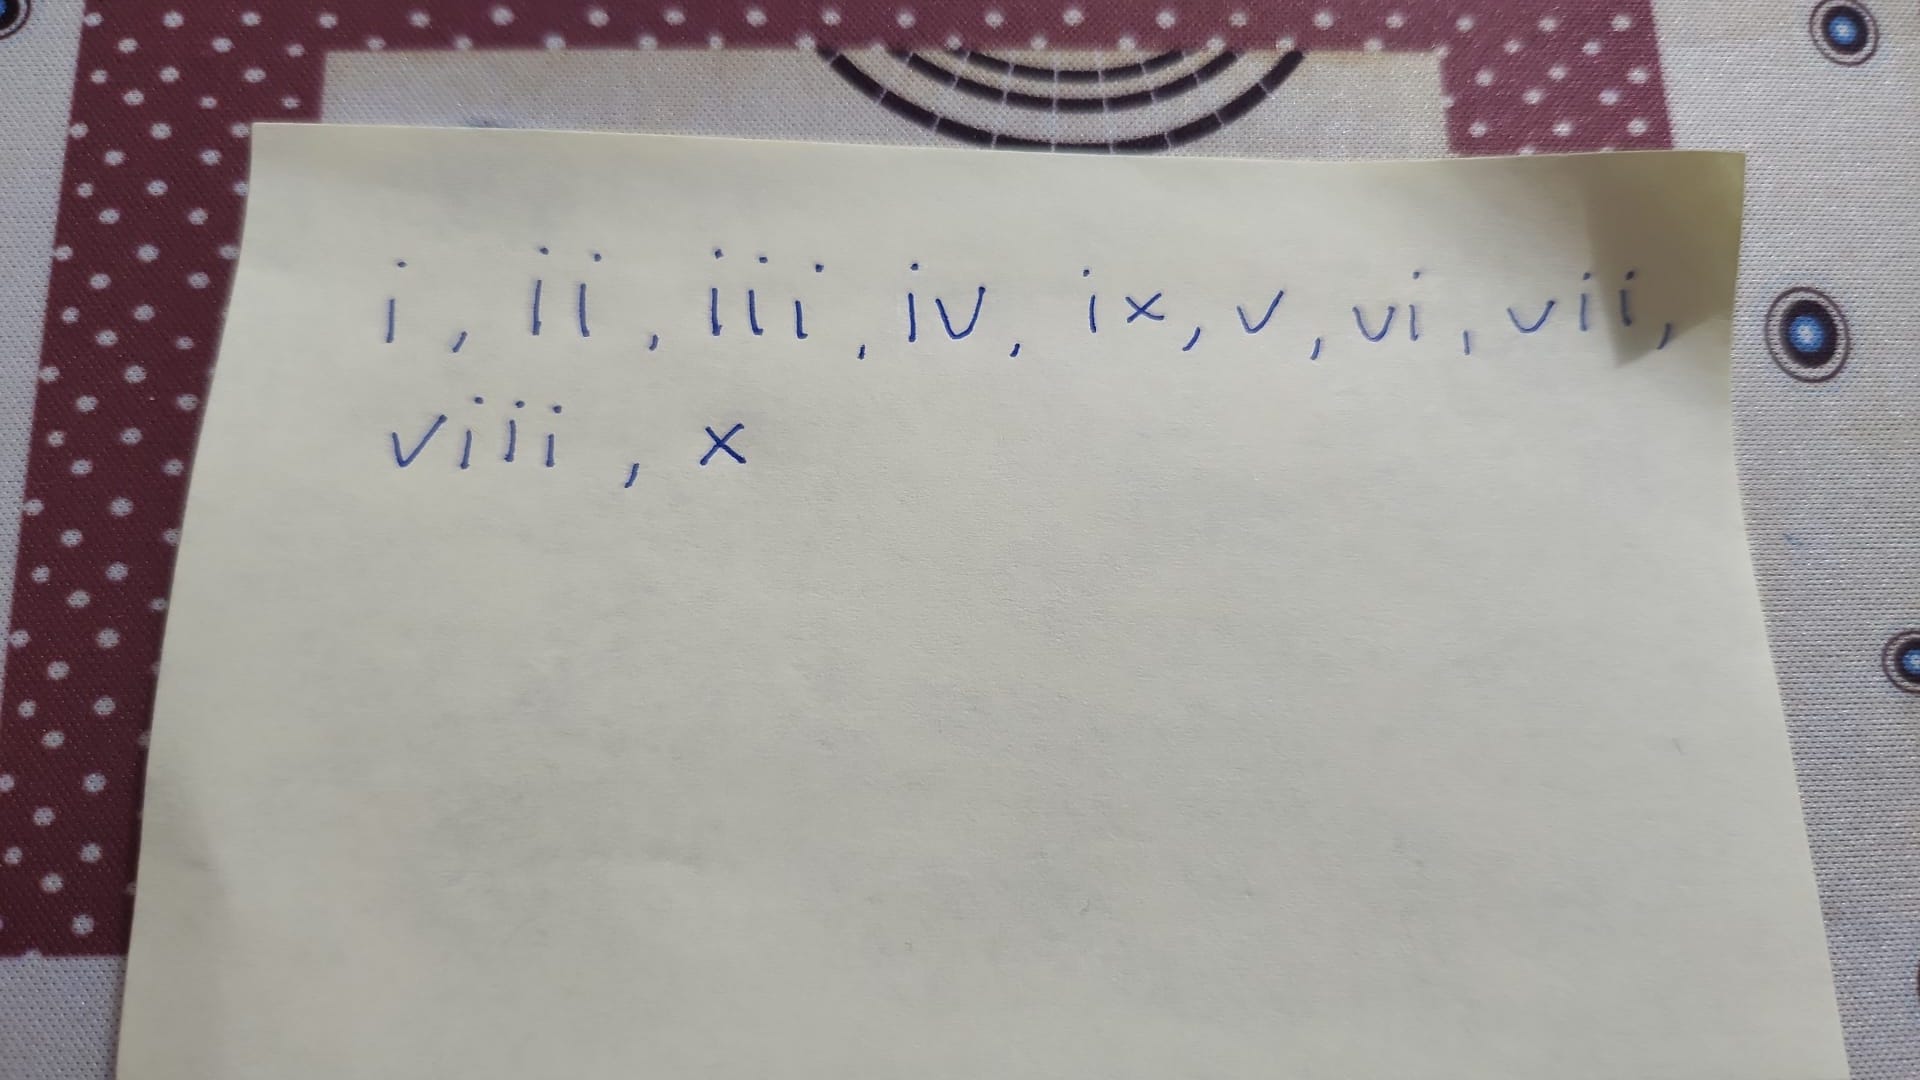 i, ii, iii, iv, ix, v, vi, vii,
viii, x